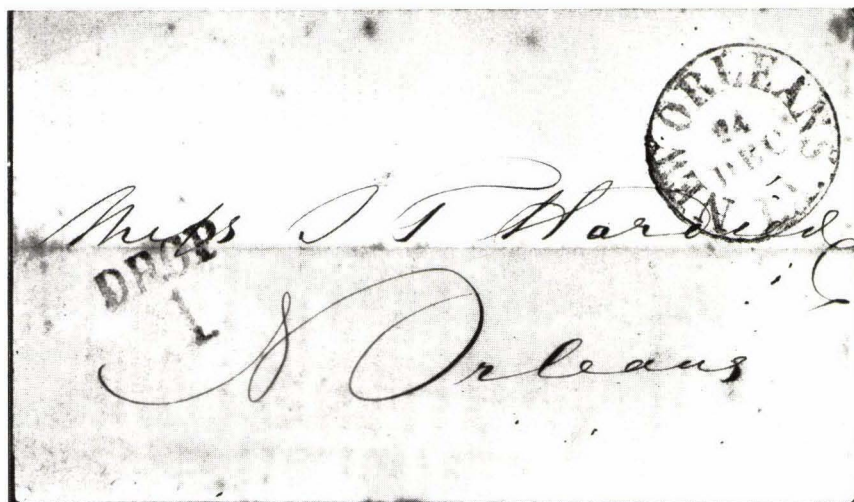 NEW ORLEANS LA.
24
DEC
Mess J T Hardie &
C
DROP
1
N Orleans